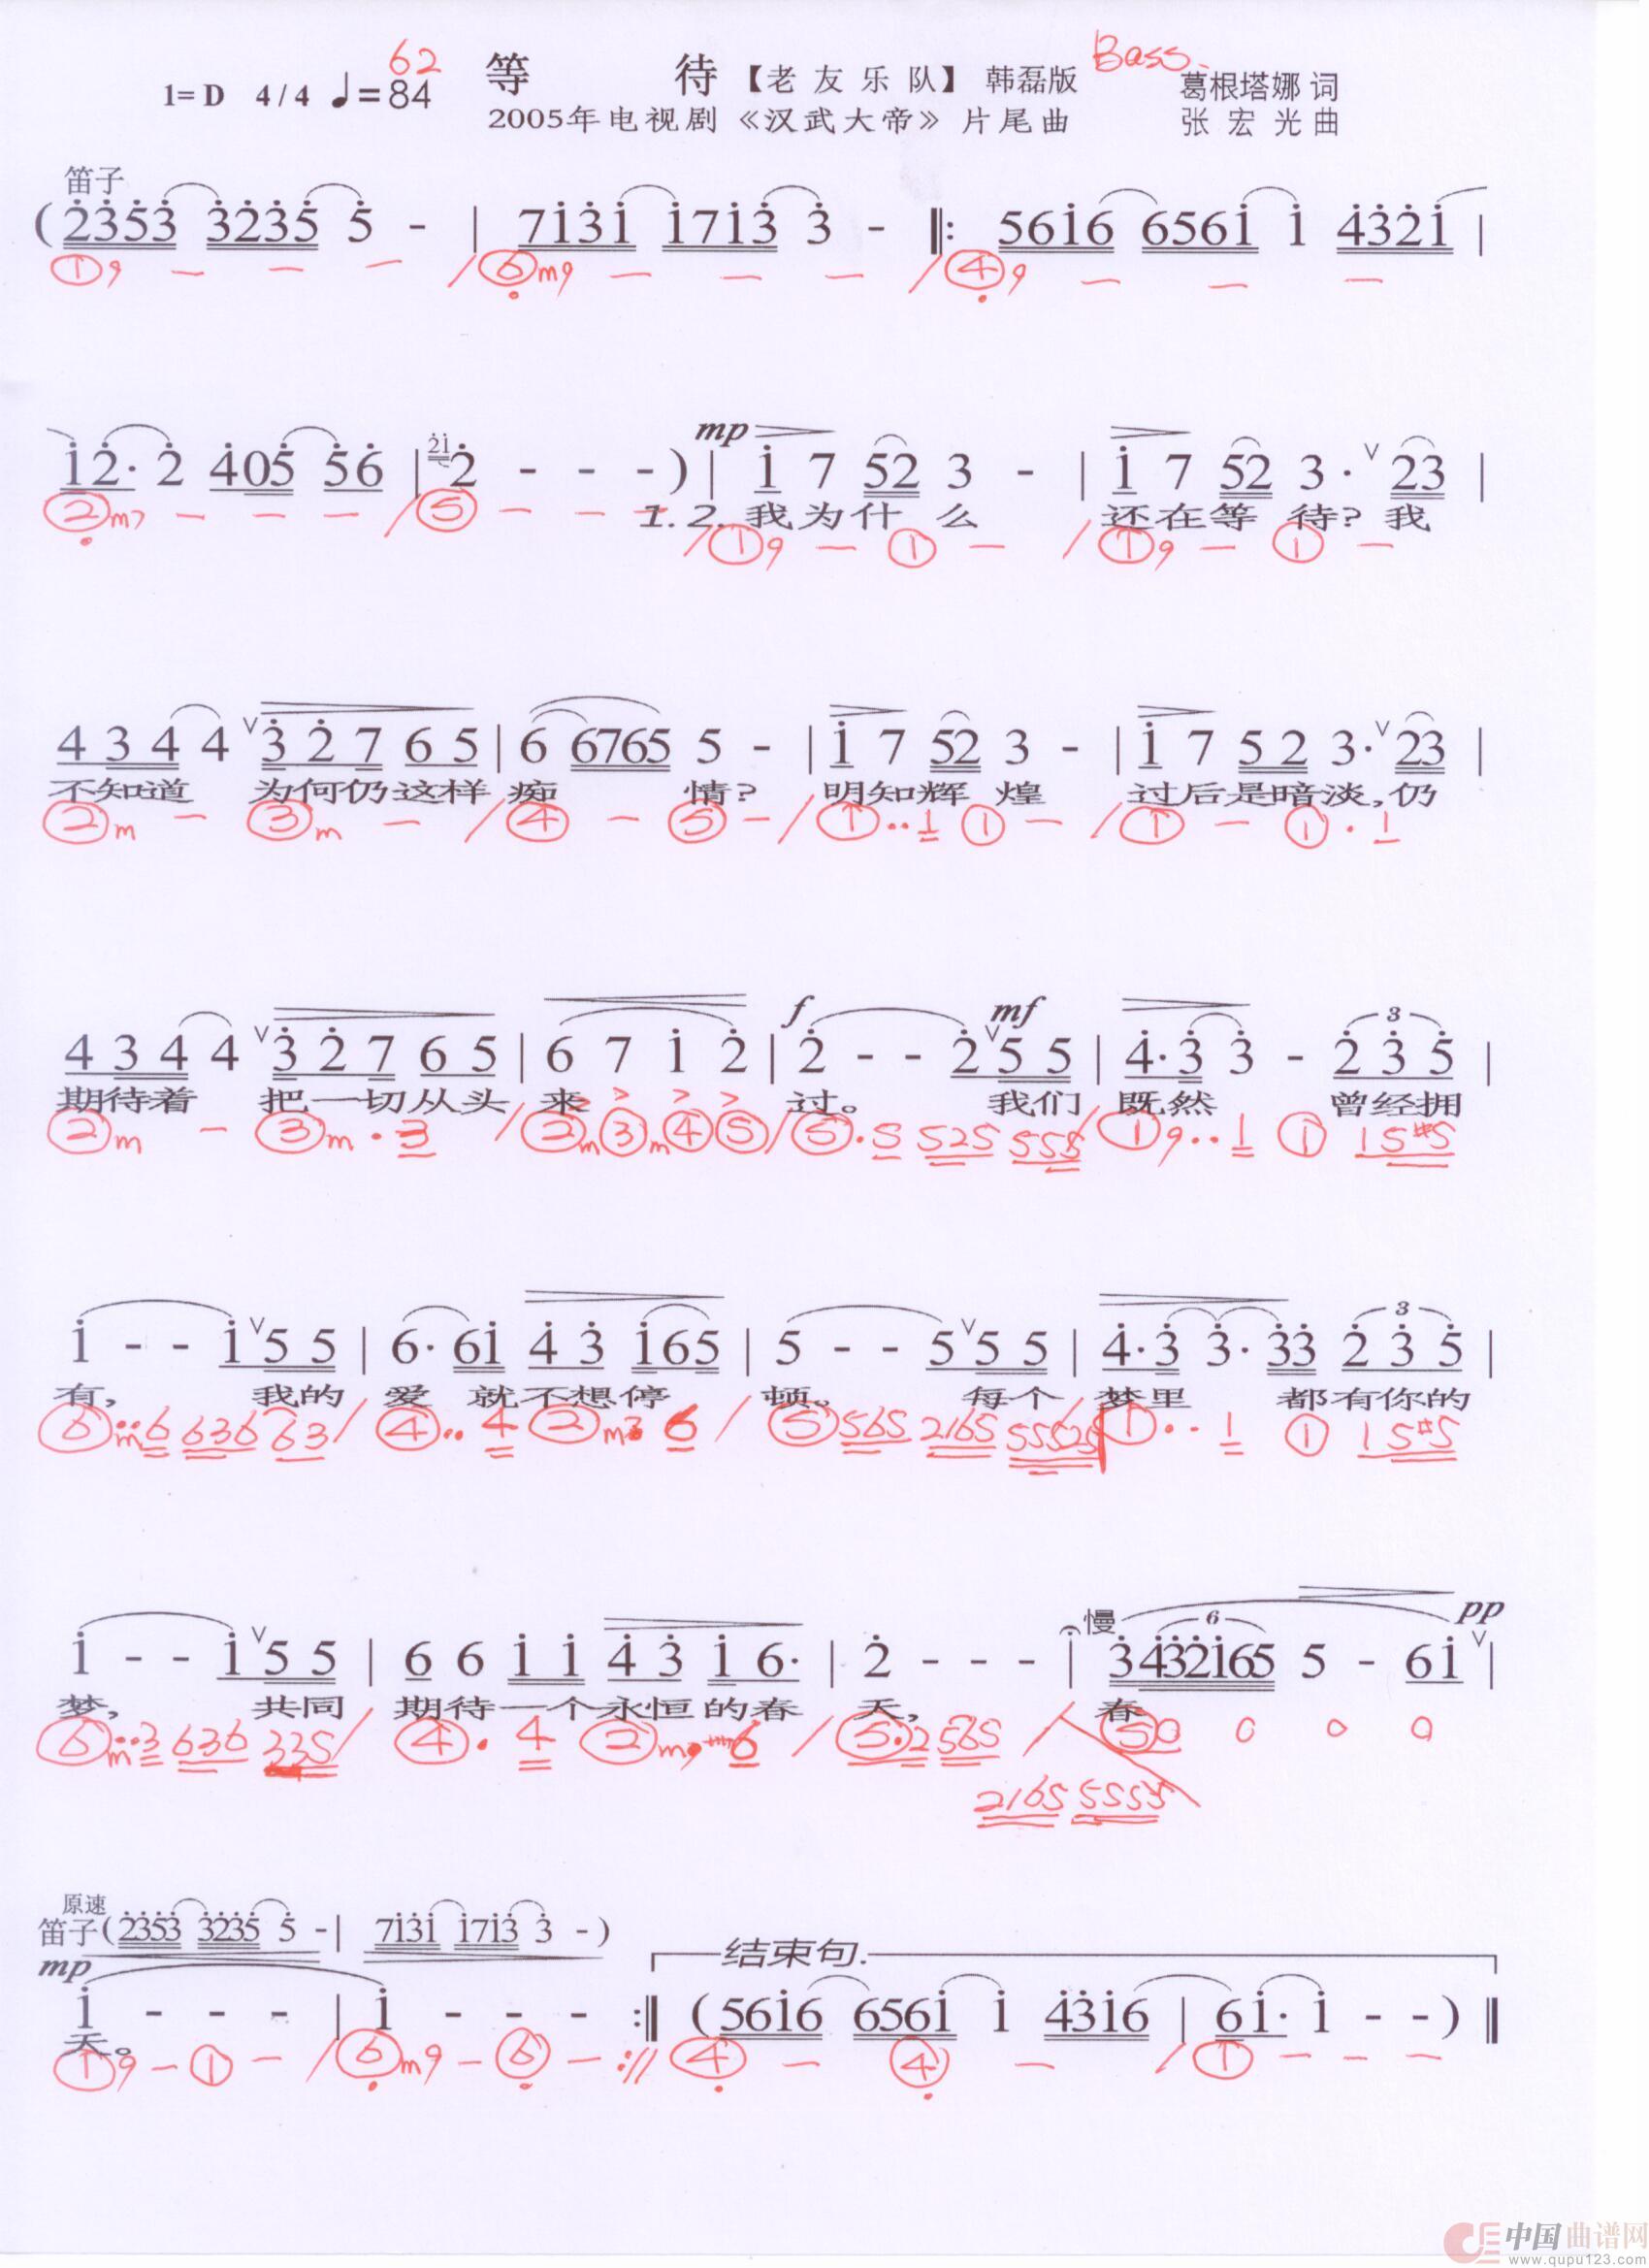 62
等 待【老 友 乐 队】 韩磊版 Bass.
1= D 4/4 ♩=84
葛根塔娜 词
2005年电视剧《汉武大帝》片尾曲
张 宏 光 曲
笛子
(2353 3235 5 - | 7131 1713 3 - ‖: 5616 6561 1 4321 |
①9 — — — / ⑥m9 — — — / ④9 — — —
mp
12· 2 405 56 | 21 2 - - - ) | 1 7 52 3 - | 1 7 52 3· ∨ 23 |
②m7 — — — / ⑤ — — —
1. 2. 我为什 么 还在等 待? 我
/ ①9 — ① — / ①9 — ① —
4 3 4 4 ∨ 3 2 7 6 5 | 6 6765 5 - | 1 7 52 3 - | 1 7 5 2 3· ∨ 23 |
不知道 为何仍这样 痴 情? 明知辉 煌 过后是暗淡,仍
②m — ③m — / ④ — ⑤ — / ①··1 ① — / ① — ①·1
f mf 3
4 3 4 4 ∨ 3 2 7 6 5 | 6 7 1 2 | 2 - - 2 ∨ 5 5 | 4·3 3 - 2 3 5 |
期待着 把一切从头 来 过。 我们 既然 曾经拥
②m — ③m·3 / ②m ③m ④ ⑤ / ⑤·5 525 555 / ①9··1 ① 15#5
3
1 - - 1 ∨ 5 5 | 6· 61 4 3 165 | 5 - - 5 ∨ 5 5 | 4·3 3·33 2 3 5 |
有, 我的 爱 就不想停 顿。 每个 梦里 都有你的
⑥m··6 636 63 / ④··4 ②m 6 / ⑤565 2165 55525 ①··1 ① 15#5
慢 6 pp
1 - - 1 ∨ 5 5 | 6 6 1 1 4 3 1 6· | 2 - - - | 3432165 5 - 61 ∨ |
梦, 共同 期待一个永恒的春 天, 春
⑥m··3 636 335 / ④·4 ②m 6 / ⑤·2 565 / ⑤0 0 0 0
2165 5555
原速
笛子(2353 3235 5 - | 7131 1713 3 - )
结束句.
mp
1 - - - | 1 - - - :‖ (5616 6561 1 4316 | 61· 1 - - ) ‖
天。
①9 — ① — / ⑥m9 — ⑥ — :// ④ — ④ — / ① — — —
中国曲谱网
www.qupu123.com